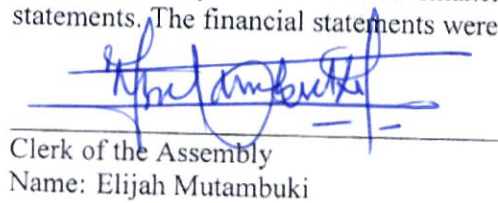 statements. The financial statements were
Clerk of the Assembly
Name: Elijah Mutambuki